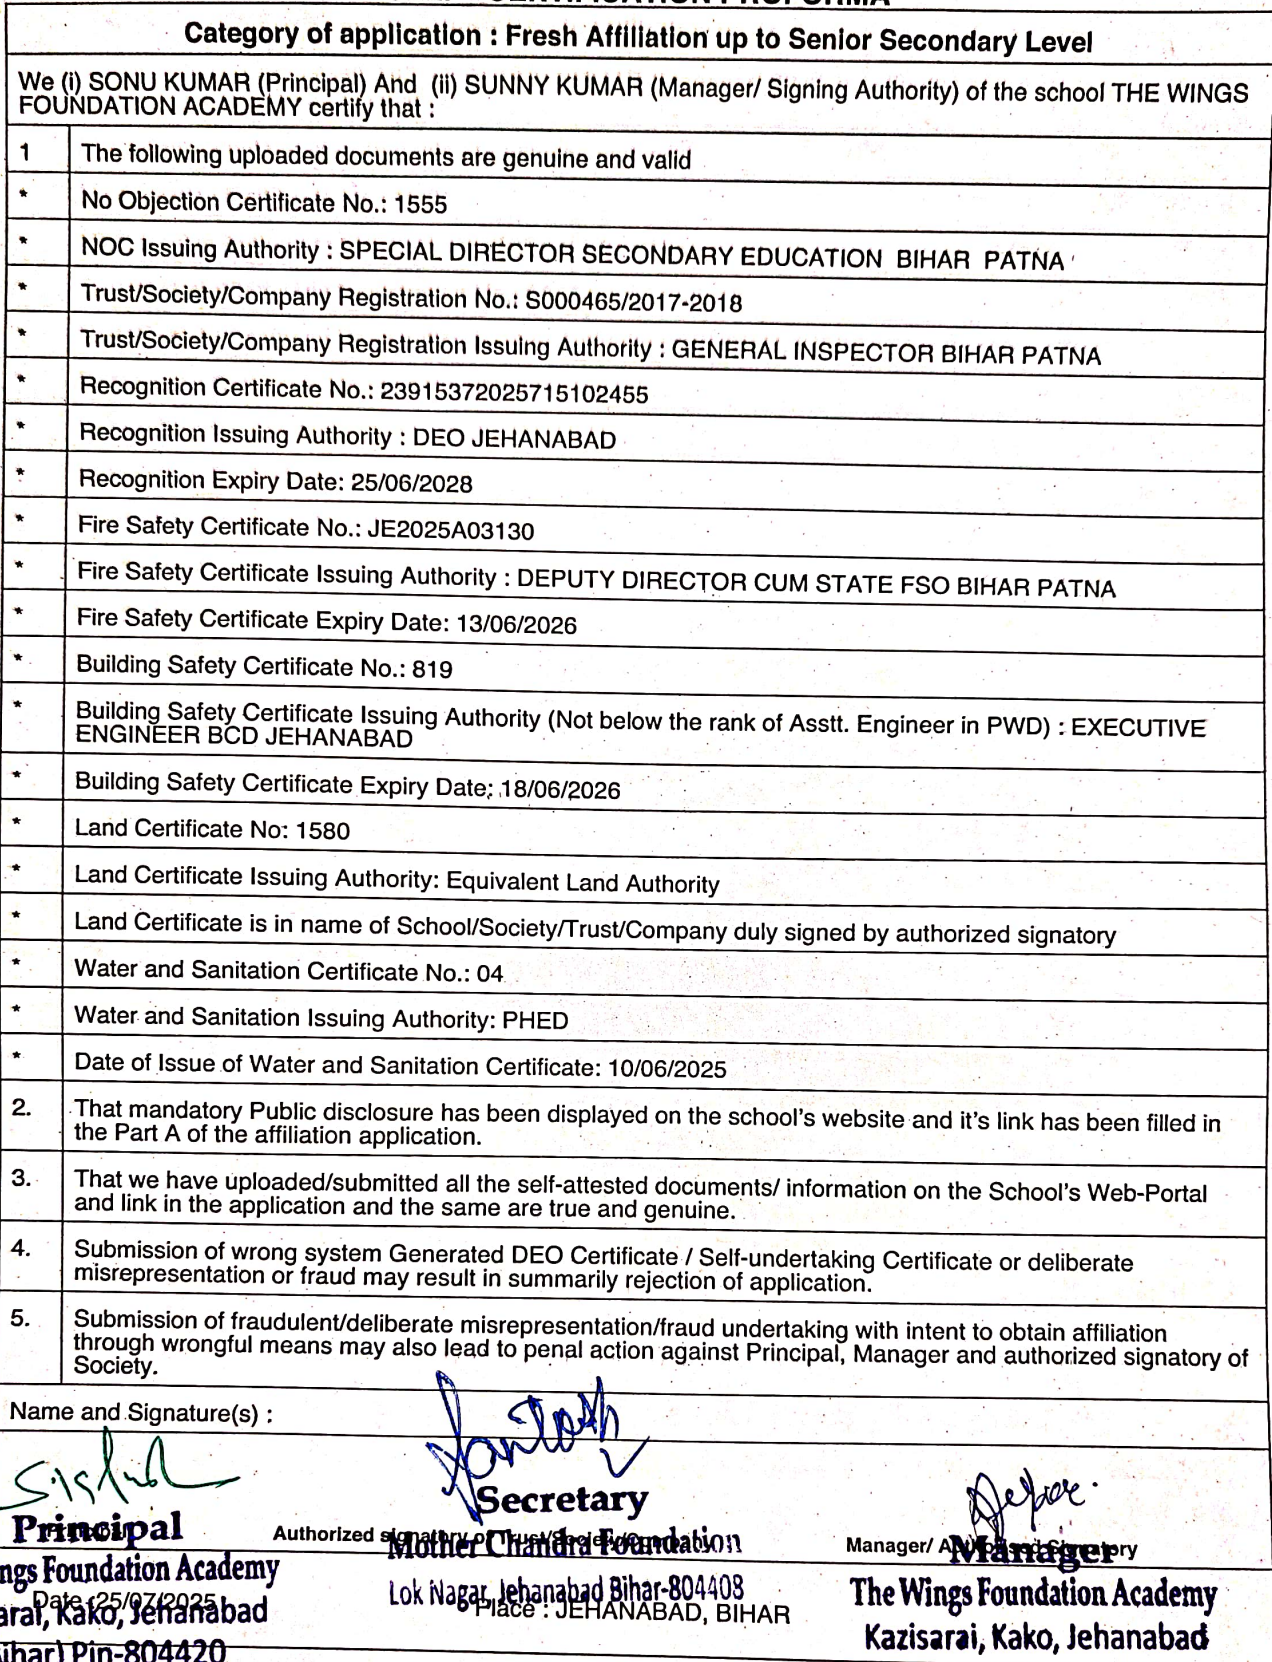 Category of application : Fresh Affiliation up to Senior Secondary Level
We (i) SONU KUMAR (Principal) And (ii) SUNNY KUMAR (Manager/ Signing Authority) of the school THE WINGS
FOUNDATION ACADEMY certify that :
1 The following uploaded documents are genuine and valid
* No Objection Certificate No.: 1555
* NOC Issuing Authority : SPECIAL DIRECTOR SECONDARY EDUCATION BIHAR PATNA
* Trust/Society/Company Registration No.: S000465/2017-2018
* Trust/Society/Company Registration Issuing Authority : GENERAL INSPECTOR BIHAR PATNA
* Recognition Certificate No.: 23915372025715102455
* Recognition Issuing Authority : DEO JEHANABAD
* Recognition Expiry Date: 25/06/2028
* Fire Safety Certificate No.: JE2025A03130
* Fire Safety Certificate Issuing Authority : DEPUTY DIRECTOR CUM STATE FSO BIHAR PATNA
* Fire Safety Certificate Expiry Date: 13/06/2026
* Building Safety Certificate No.: 819
* Building Safety Certificate Issuing Authority (Not below the rank of Asstt. Engineer in PWD) : EXECUTIVE
ENGINEER BCD JEHANABAD
* Building Safety Certificate Expiry Date: 18/06/2026
* Land Certificate No: 1580
* Land Certificate Issuing Authority: Equivalent Land Authority
* Land Certificate is in name of School/Society/Trust/Company duly signed by authorized signatory
* Water and Sanitation Certificate No.: 04
* Water and Sanitation Issuing Authority: PHED
* Date of Issue of Water and Sanitation Certificate: 10/06/2025
2. That mandatory Public disclosure has been displayed on the school's website and it's link has been filled in
the Part A of the affiliation application.
3. That we have uploaded/submitted all the self-attested documents/ information on the School's Web-Portal
and link in the application and the same are true and genuine.
4. Submission of wrong system Generated DEO Certificate / Self-undertaking Certificate or deliberate
misrepresentation or fraud may result in summarily rejection of application.
5. Submission of fraudulent/deliberate misrepresentation/fraud undertaking with intent to obtain affiliation
through wrongful means may also lead to penal action against Principal, Manager and authorized signatory of
Society.
Name and Signature(s) :
Santosh
Principal
ngs Foundation Academy
Date :25/07/2025
arai, Kako, Jehanabad
ihar) Pin-804420
Secretary
Authorized signatory of Trust/Society/Company
Mother Chandra Foundation
Lok Nagar, Jehanabad Bihar-804408
Place : JEHANABAD, BIHAR
Manager/ Authorised Signatory
Manager
The Wings Foundation Academy
Kazisarai, Kako, Jehanabad